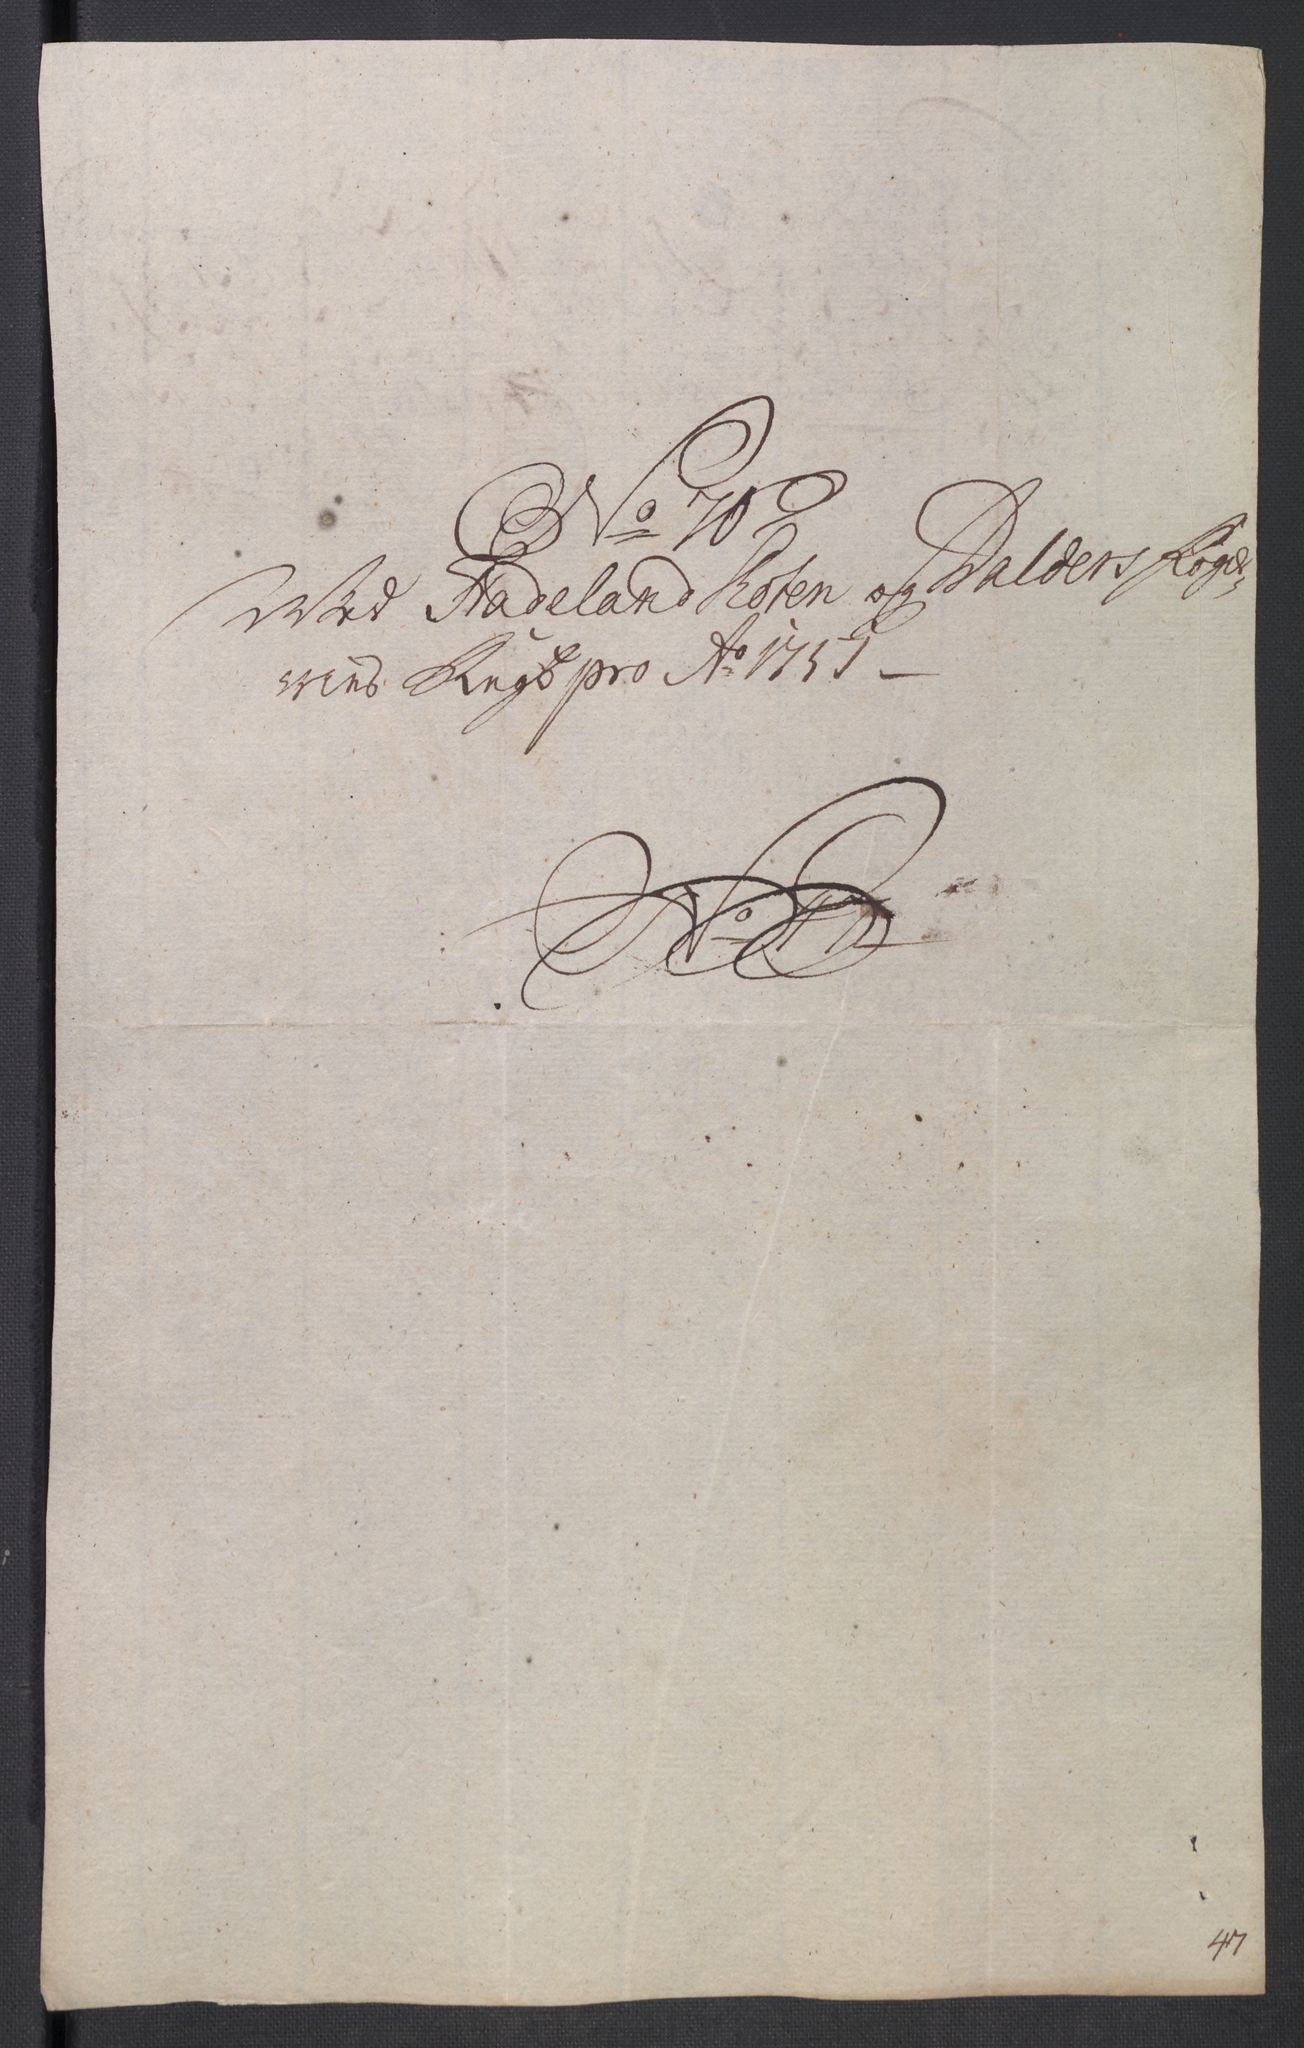 No 70
Ved Hadeland Toten og Valders Fogde-
ries Regsk pro Ao 1757
No
47